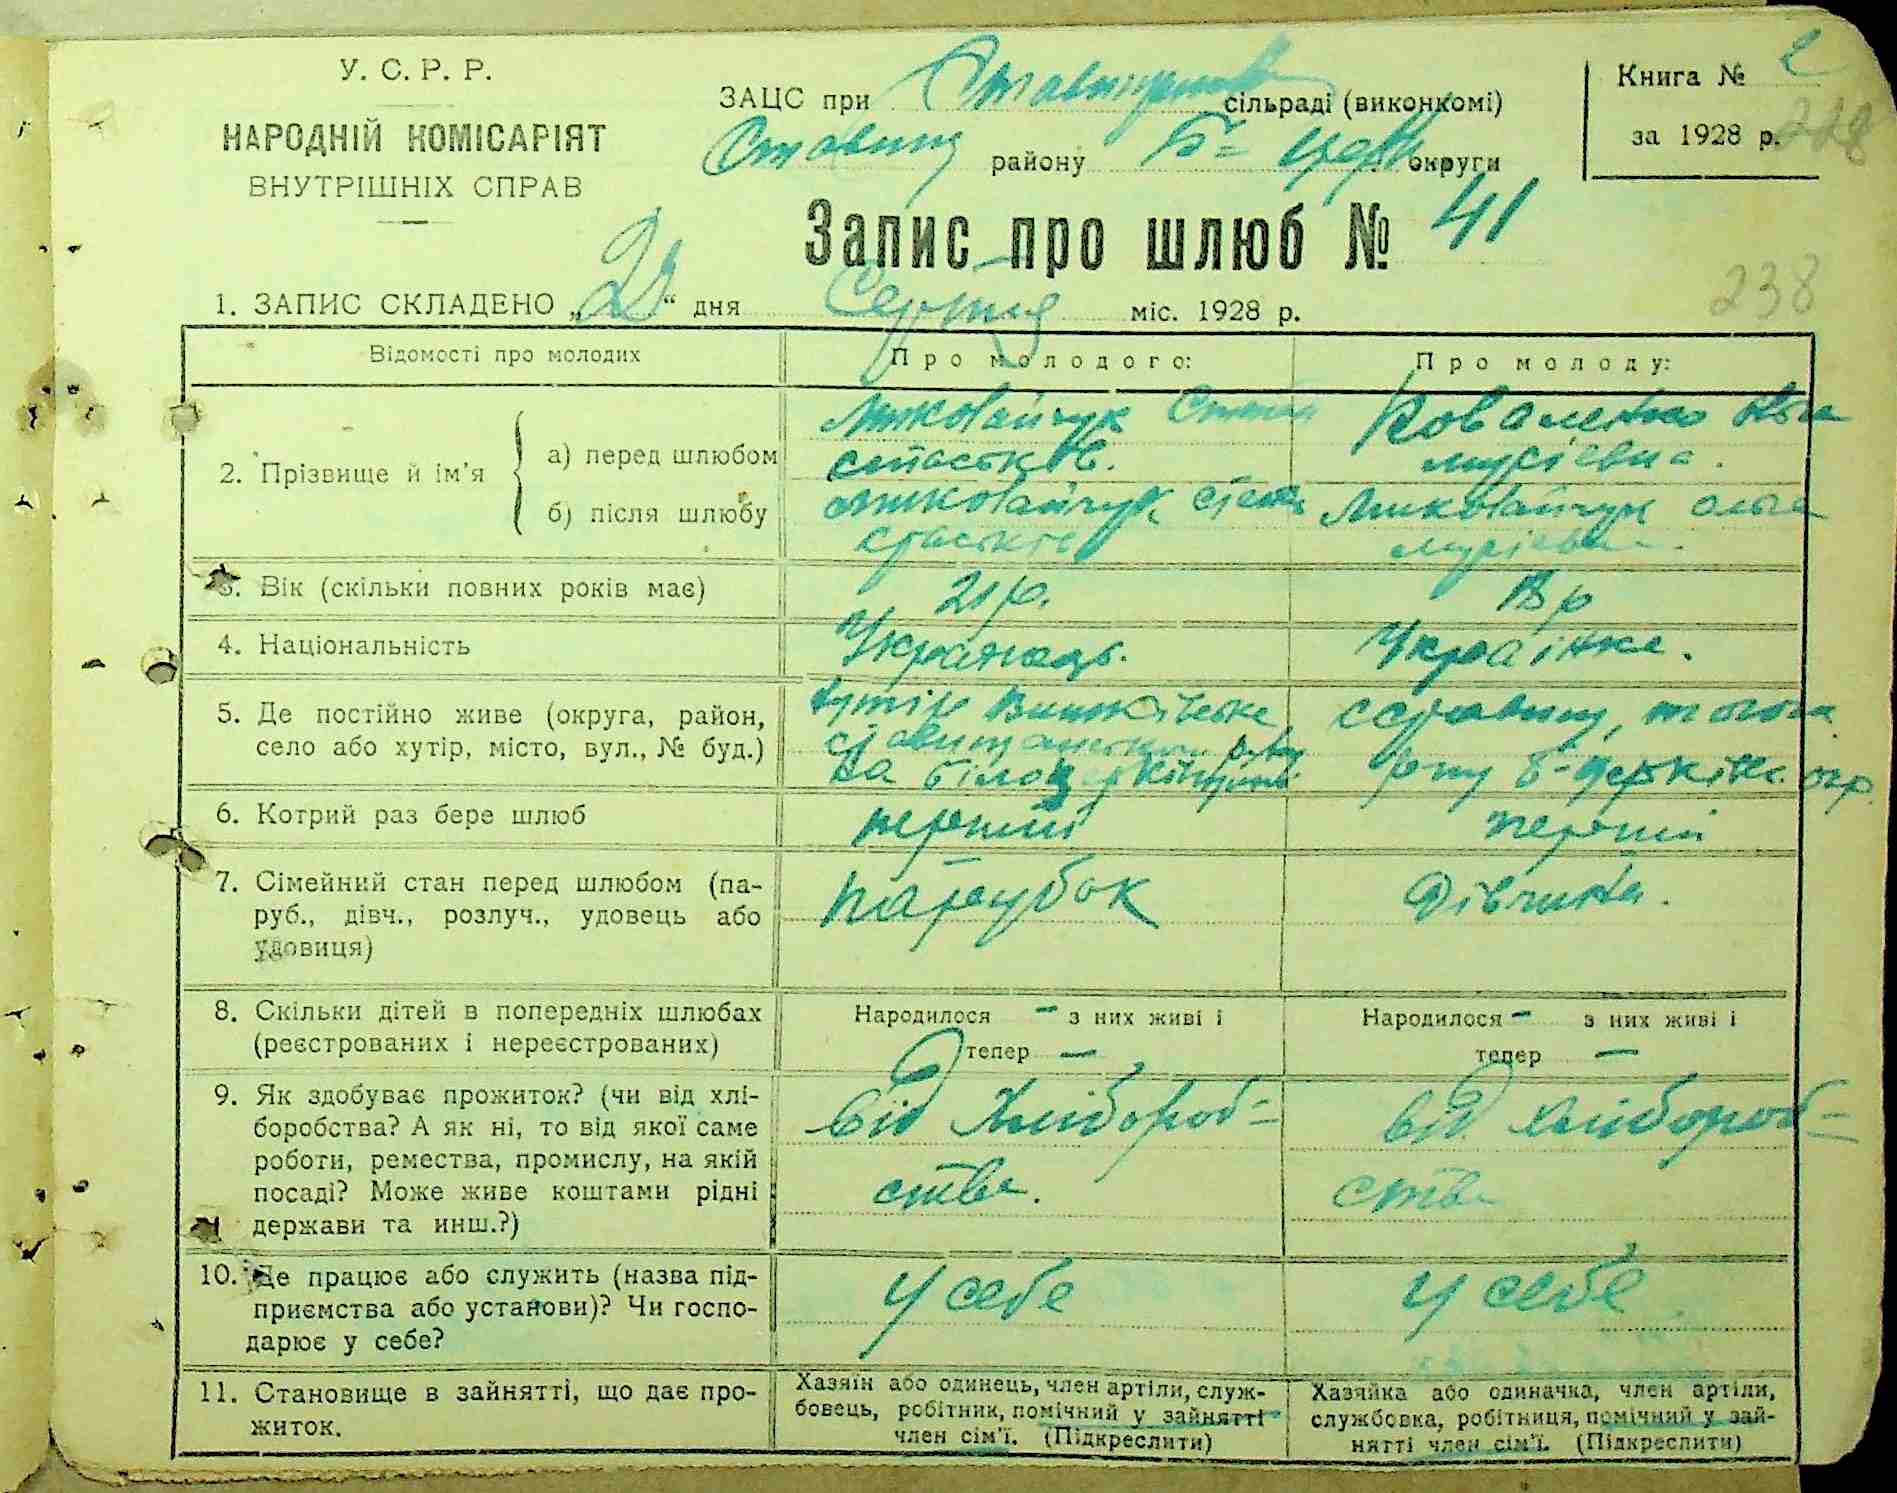 У. С. Р. Р.
НАРОДНІЙ КОМІСАРІЯТ
ВНУТРІШНІХ СПРАВ
ЗАЦС при сільраді (виконкомі)
району Б= церк округи
Книга № 2
за 1928 р.
228
Запис про шлюб № 41
238
1. ЗАПИС СКЛАДЕНО „ “ дня Серпня міс. 1928 р.
Відомості про молодих
Про молодого:
Про молоду:
2. Прізвище й ім’я
а) перед шлюбом
Миколайчук
Коваленко
Мусіївна.
б) після шлюбу
Миколайчук
Миколайчук Ольга
Мусіївна.
3. Вік (скільки повних років має)
21 р.
18 р
4. Національність
Українець.
Українка.
5. Де постійно живе (округа, район,
село або хутір, місто, вул., № буд.)
хутір
6. Котрий раз бере шлюб
перший
перший
7. Сімейний стан перед шлюбом (па-
руб., дівч., розлуч., удовець або
удовиця)
парубок
Дівчина.
8. Скільки дітей в попередніх шлюбах
(реєстрованих і нереєстрованих)
Народилося – з них живі і
тепер —
Народилося – з них живі і
тепер —
9. Як здобуває прожиток? (чи від хлі-
боробства? А як ні, то від якої саме
роботи, ремества, промислу, на якій
посаді? Може живе коштами рідні
держави та инш.?)
від Хлібороб=
ства.
від хлібороб=
ства
10. Де працює або служить (назва під-
приємства або установи)? Чи госпо-
дарює у себе?
у себе
у себе
11. Становище в зайнятті, що дає про-
житок.
Хазяїн або одинець, член артіли, служ-
бовець, робітник, помічний у зайнятті
член сім’ї. (Підкреслити)
Хазяйка або одиначка, член артіли,
службовка, робітниця, помічний у зай-
нятті член сім’ї. (Підкреслити)